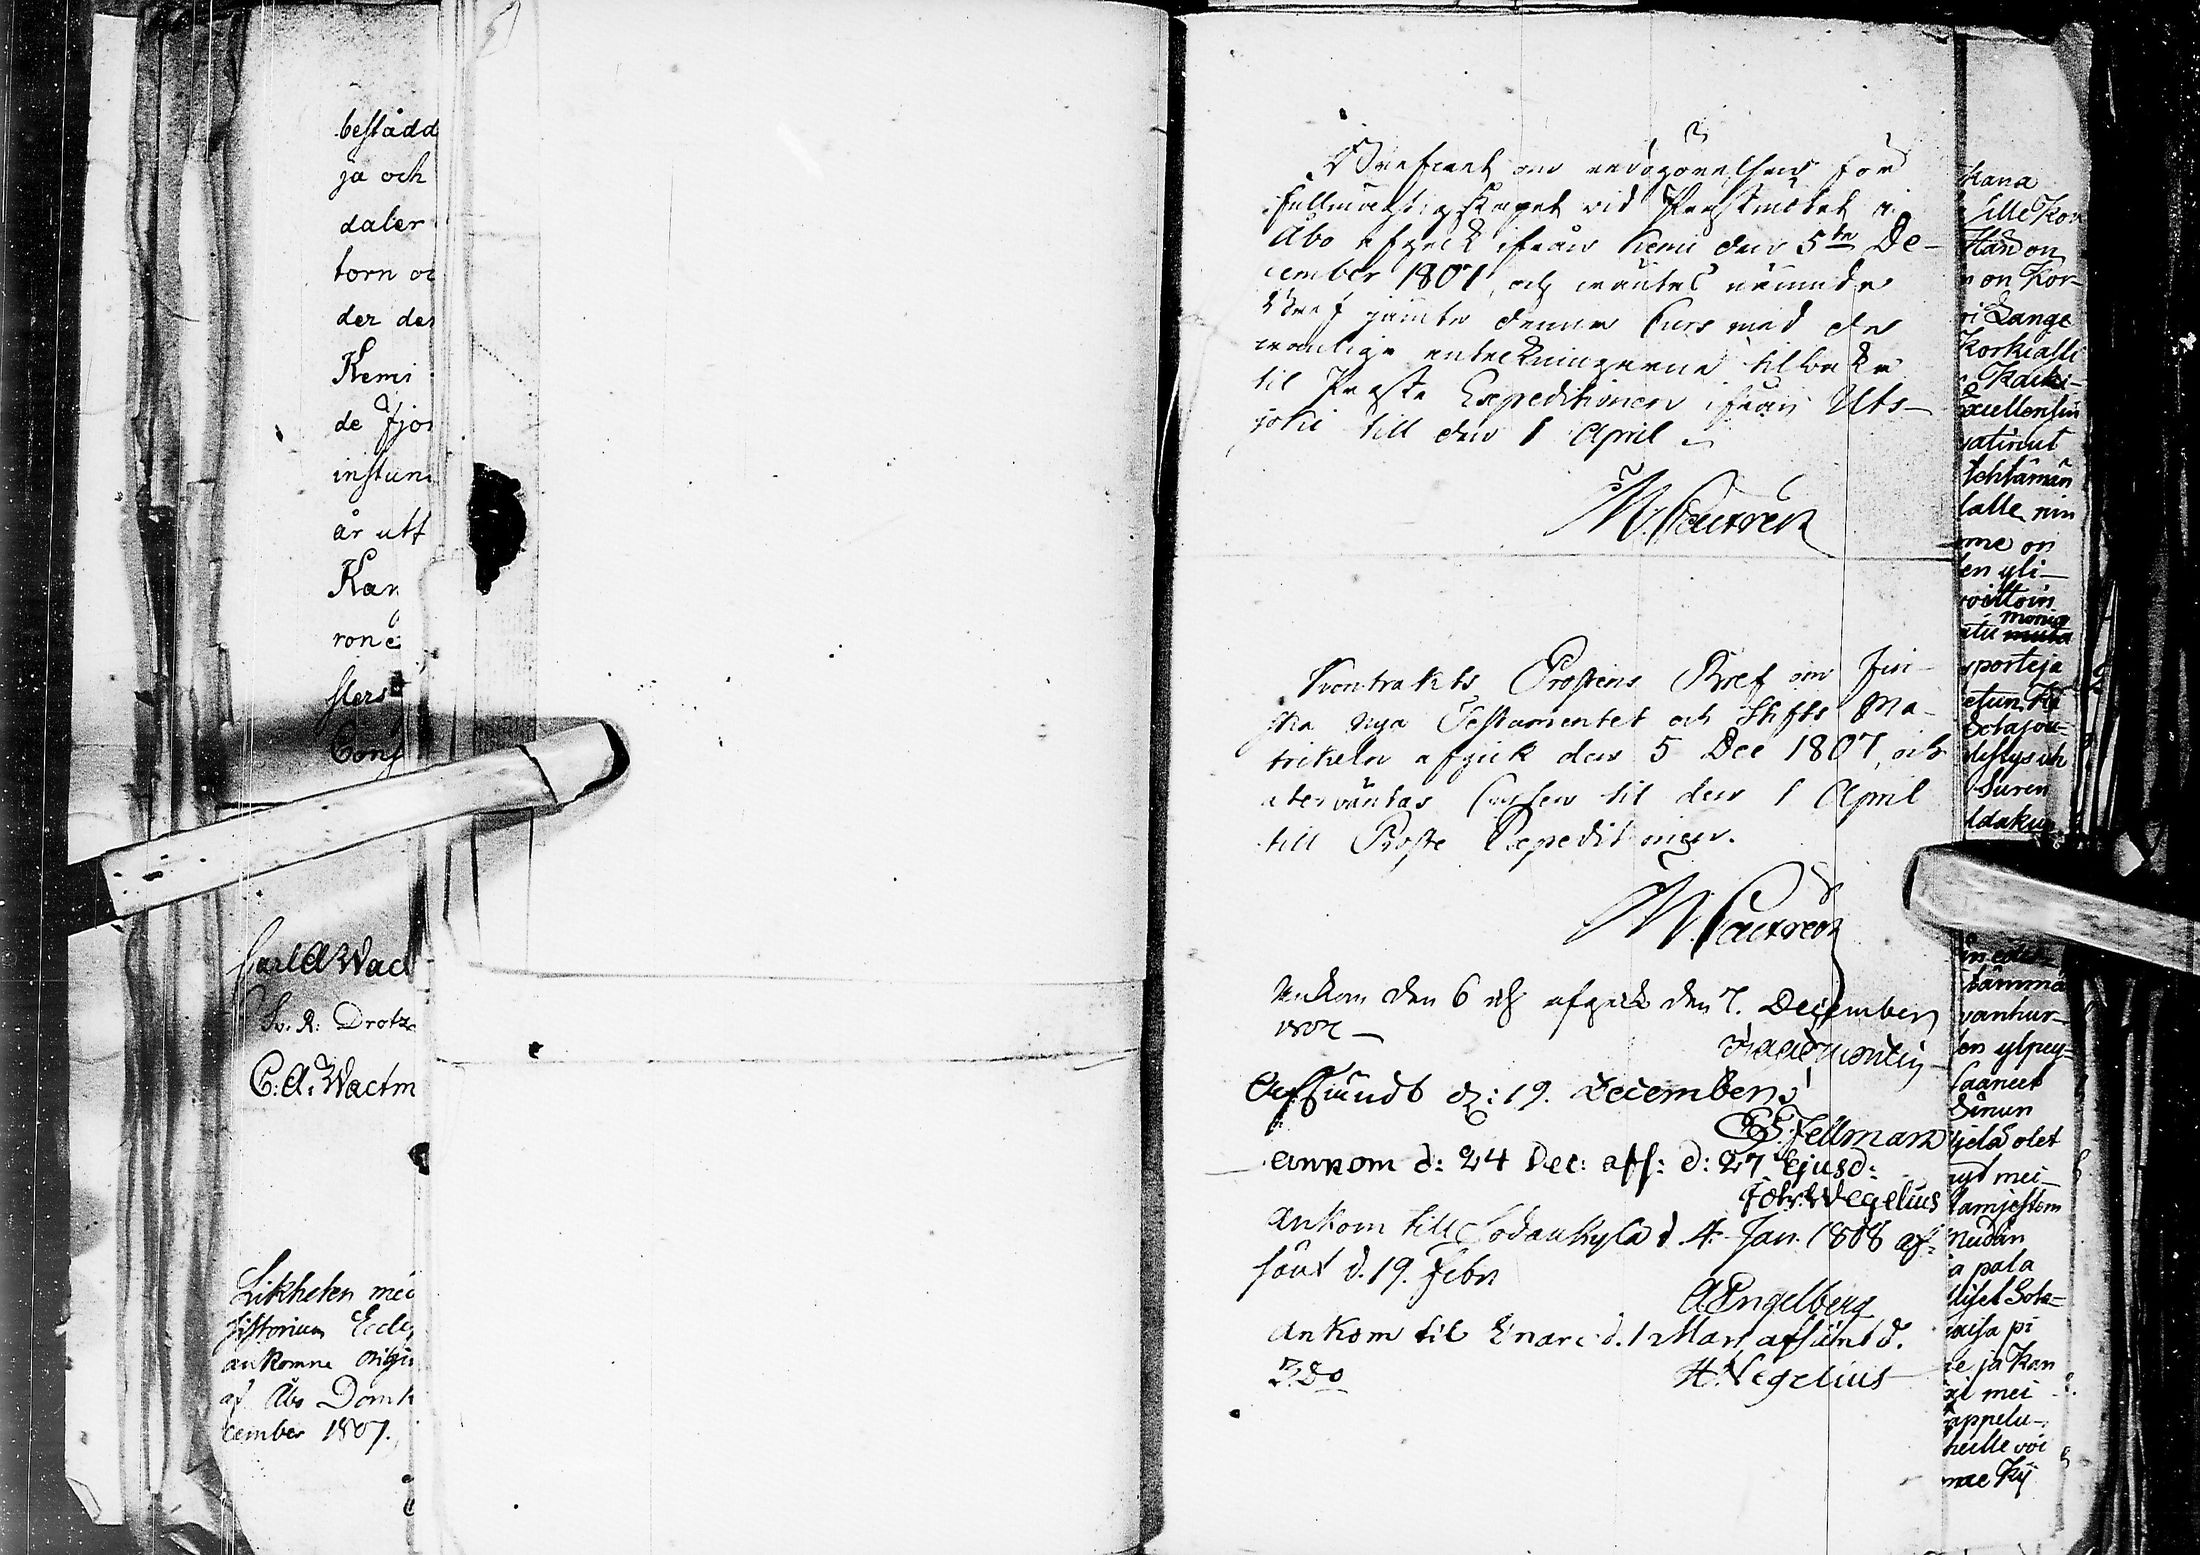 bestådd
ja och
daler
torn oc
der der
Kemi
de Fjor
instun
år utf
Kan
rone
sters
Cons
Carl A Wac
Sv. R: Drotz
C: A: Wactm
Likheten med
sistorium Eccle
ankomne origin
af Åbo Domk
cember 1807.
Brefvet om redogörelsen för
fullmägtigskapet vid Prestmötet i
Åbo afgeck ifrån Kemi den 5te De-
cember 1807, och wäntes nämnde
Bref jämte denna Curs med de
wanlige anteckningarne tilbaka
til Proste Expeditionen ifrån Uts-
joki till den 1 April
M. Castren
Kontrakts Prostens Bref om Fin-
ska Nya Testamentet och Stifts Ma-
trikeln afgick den 5 Dec 1807, och
återväntas Cursen til den 1 April
till Proste Expeditionen.
M. Castren
Ankom den 6 och afgeck den 7. December
1807 —
Afsändt d: 19. Decembers
E. G. Fellman
ankom d: 24 Dec: afs: d: 27 Ejusd:
Joh: Wegelius
Ankom till Sodankylä d. 4. Jan. 1808 af-
sänt d. 19. Febr
A Engelberg
Ankom til Enare d. 1 Mars, afsänt d.
3. do
H. Wegelius
kana
sille Kor
Händ on
n on Kor-
ri Lange
Korkiasti
Kaiki-
Excellensin
ratinut
lalle nin
me on
en yli-
woittoin
monia
sporteja
etun
Sotajou-
Suren
ldakun
tämmä
vanhur-
en ylpey-
saaneet
Sinun
tjelä olet
nyt mei-
Nudän
a pala
liset Sota-
aisa pi
e ja Kan
xi mei
appelu-
heille voi
mae Kij